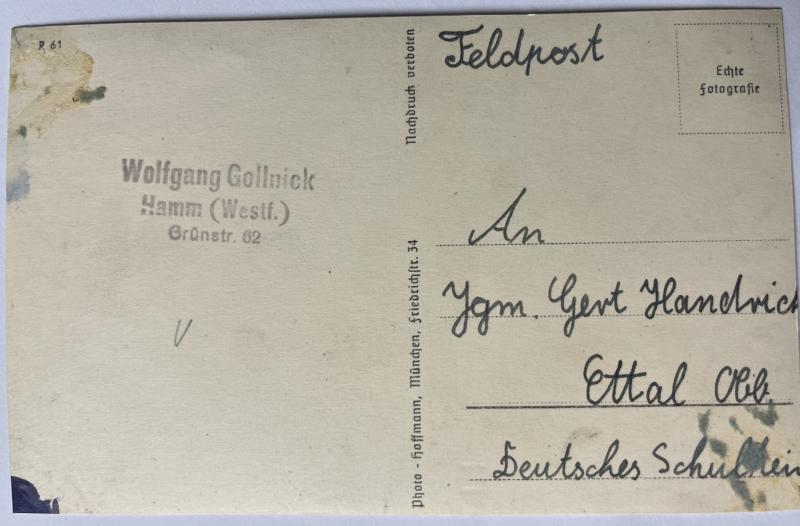 R 61
Wolfgang Gollnick
Hamm (Westf.)
Grünstr. 62
V
Nachdruck verboten
Photo - Hoffmann, München, Friedrichstr. 34
Feldpost
Echte
Fotografie
An
Jgm. Gert Handrich
Ettal Obb.
Deutsches